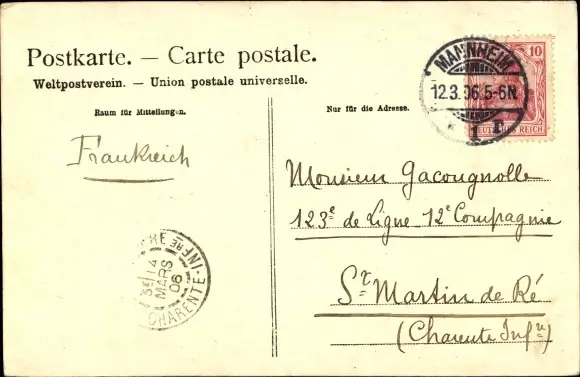 Postkarte. — Carte postale.
Weltpostverein. — Union postale universelle.
Raum für Mitteilungen.
Nur für die Adresse.
Frankreich
MANNHEIM
12.3.06.5-6N.
* 1 r
10
DEUTSCHES REICH
Monsieur Gacougnolle
123e de Ligne 12e Compagnie
St Martin de Ré
(Charente Infre)
14
MARS
06
CHARENTE-INFRE